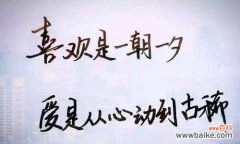 喜欢是一朝一夕
爱是从心动到古稀
www.baike.com